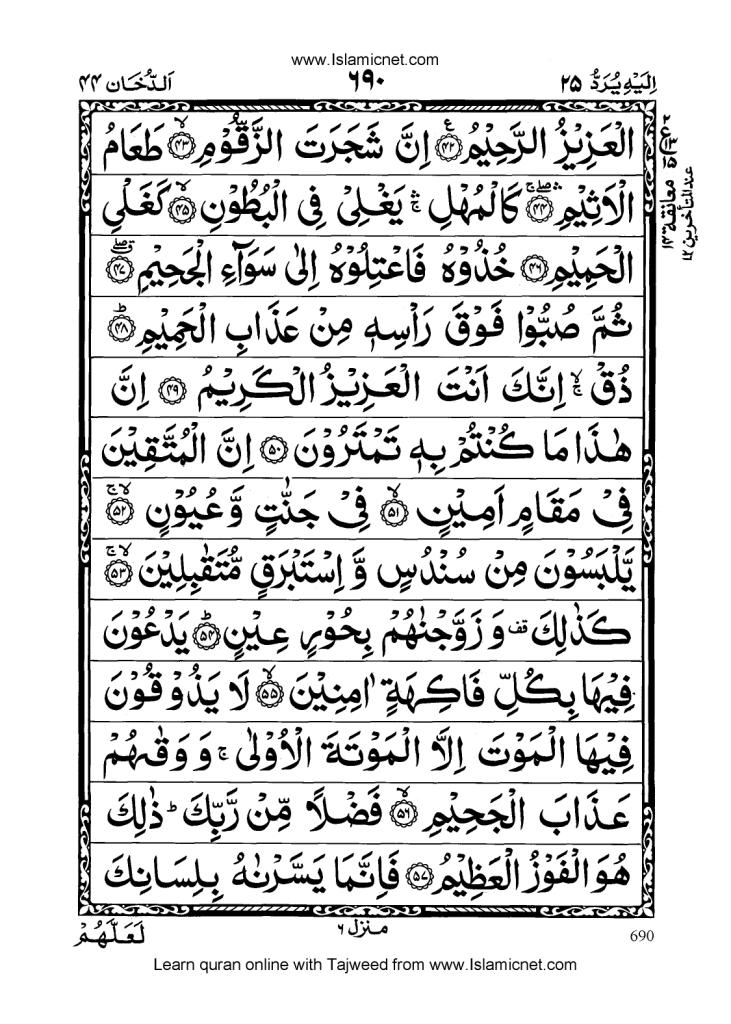 www.Islamicnet.com
اَلدُّخَان ۴۴ ۶۹۰ اِلَيْهِ يُرَدُّ ۲۵
الْعَزِيْزُ الرَّحِيْمُ ۴۲ ع اِنَّ شَجَرَتَ الزَّقُّوْمِ ۴۳ لا طَعَامُ
الْاَثِيْمِ ۴۴ كَالْمُهْلِ يَغْلِىْ فِى الْبُطُوْنِ ۴۵ لا كَغَلْىِ
الْحَمِيْمِ ۴۶ خُذُوْهُ فَاعْتِلُوْهُ اِلٰى سَوَآءِ الْجَحِيْمِ ۴۷
ثُمَّ صُبُّوْا فَوْقَ رَاْسِهٖ مِنْ عَذَابِ الْحَمِيْمِ ۴۸ ط
ذُقْ اِنَّكَ اَنْتَ الْعَزِيْزُ الْكَرِيْمُ ۴۹ اِنَّ
هٰذَا مَا كُنْتُمْ بِهٖ تَمْتَرُوْنَ ۵۰ اِنَّ الْمُتَّقِيْنَ
فِىْ مَقَامٍ اَمِيْنٍ ۵۱ لا فِىْ جَنّٰتٍ وَّعُيُوْنٍ ۵۲ لاج
يَّلْبَسُوْنَ مِنْ سُنْدُسٍ وَّاِسْتَبْرَقٍ مُّتَقٰبِلِيْنَ ۵۳ لاج
كَذٰلِكَ قف وَزَوَّجْنٰهُمْ بِحُوْرٍ عِيْنٍ ۵۴ ط يَدْعُوْنَ
فِيْهَا بِكُلِّ فَاكِهَةٍ اٰمِنِيْنَ ۵۵ لا لَا يَذُوْقُوْنَ
فِيْهَا الْمَوْتَ اِلَّا الْمَوْتَةَ الْاُوْلٰى ج وَوَقٰىهُمْ
عَذَابَ الْجَحِيْمِ ۵۶ لا فَضْلًا مِّنْ رَّبِّكَ ط ذٰلِكَ
هُوَ الْفَوْزُ الْعَظِيْمُ ۵۷ فَاِنَّمَا يَسَّرْنٰهُ بِلِسَانِكَ
معانقة ۱۳
عند المتأخرين ۱۲
منزل ۶
لَعَلَّهُمْ
690
Learn quran online with Tajweed from www.Islamicnet.com